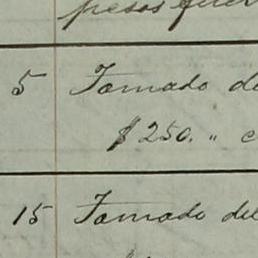 pesos
5 Tomado de
$250. " c
15 Tomado del